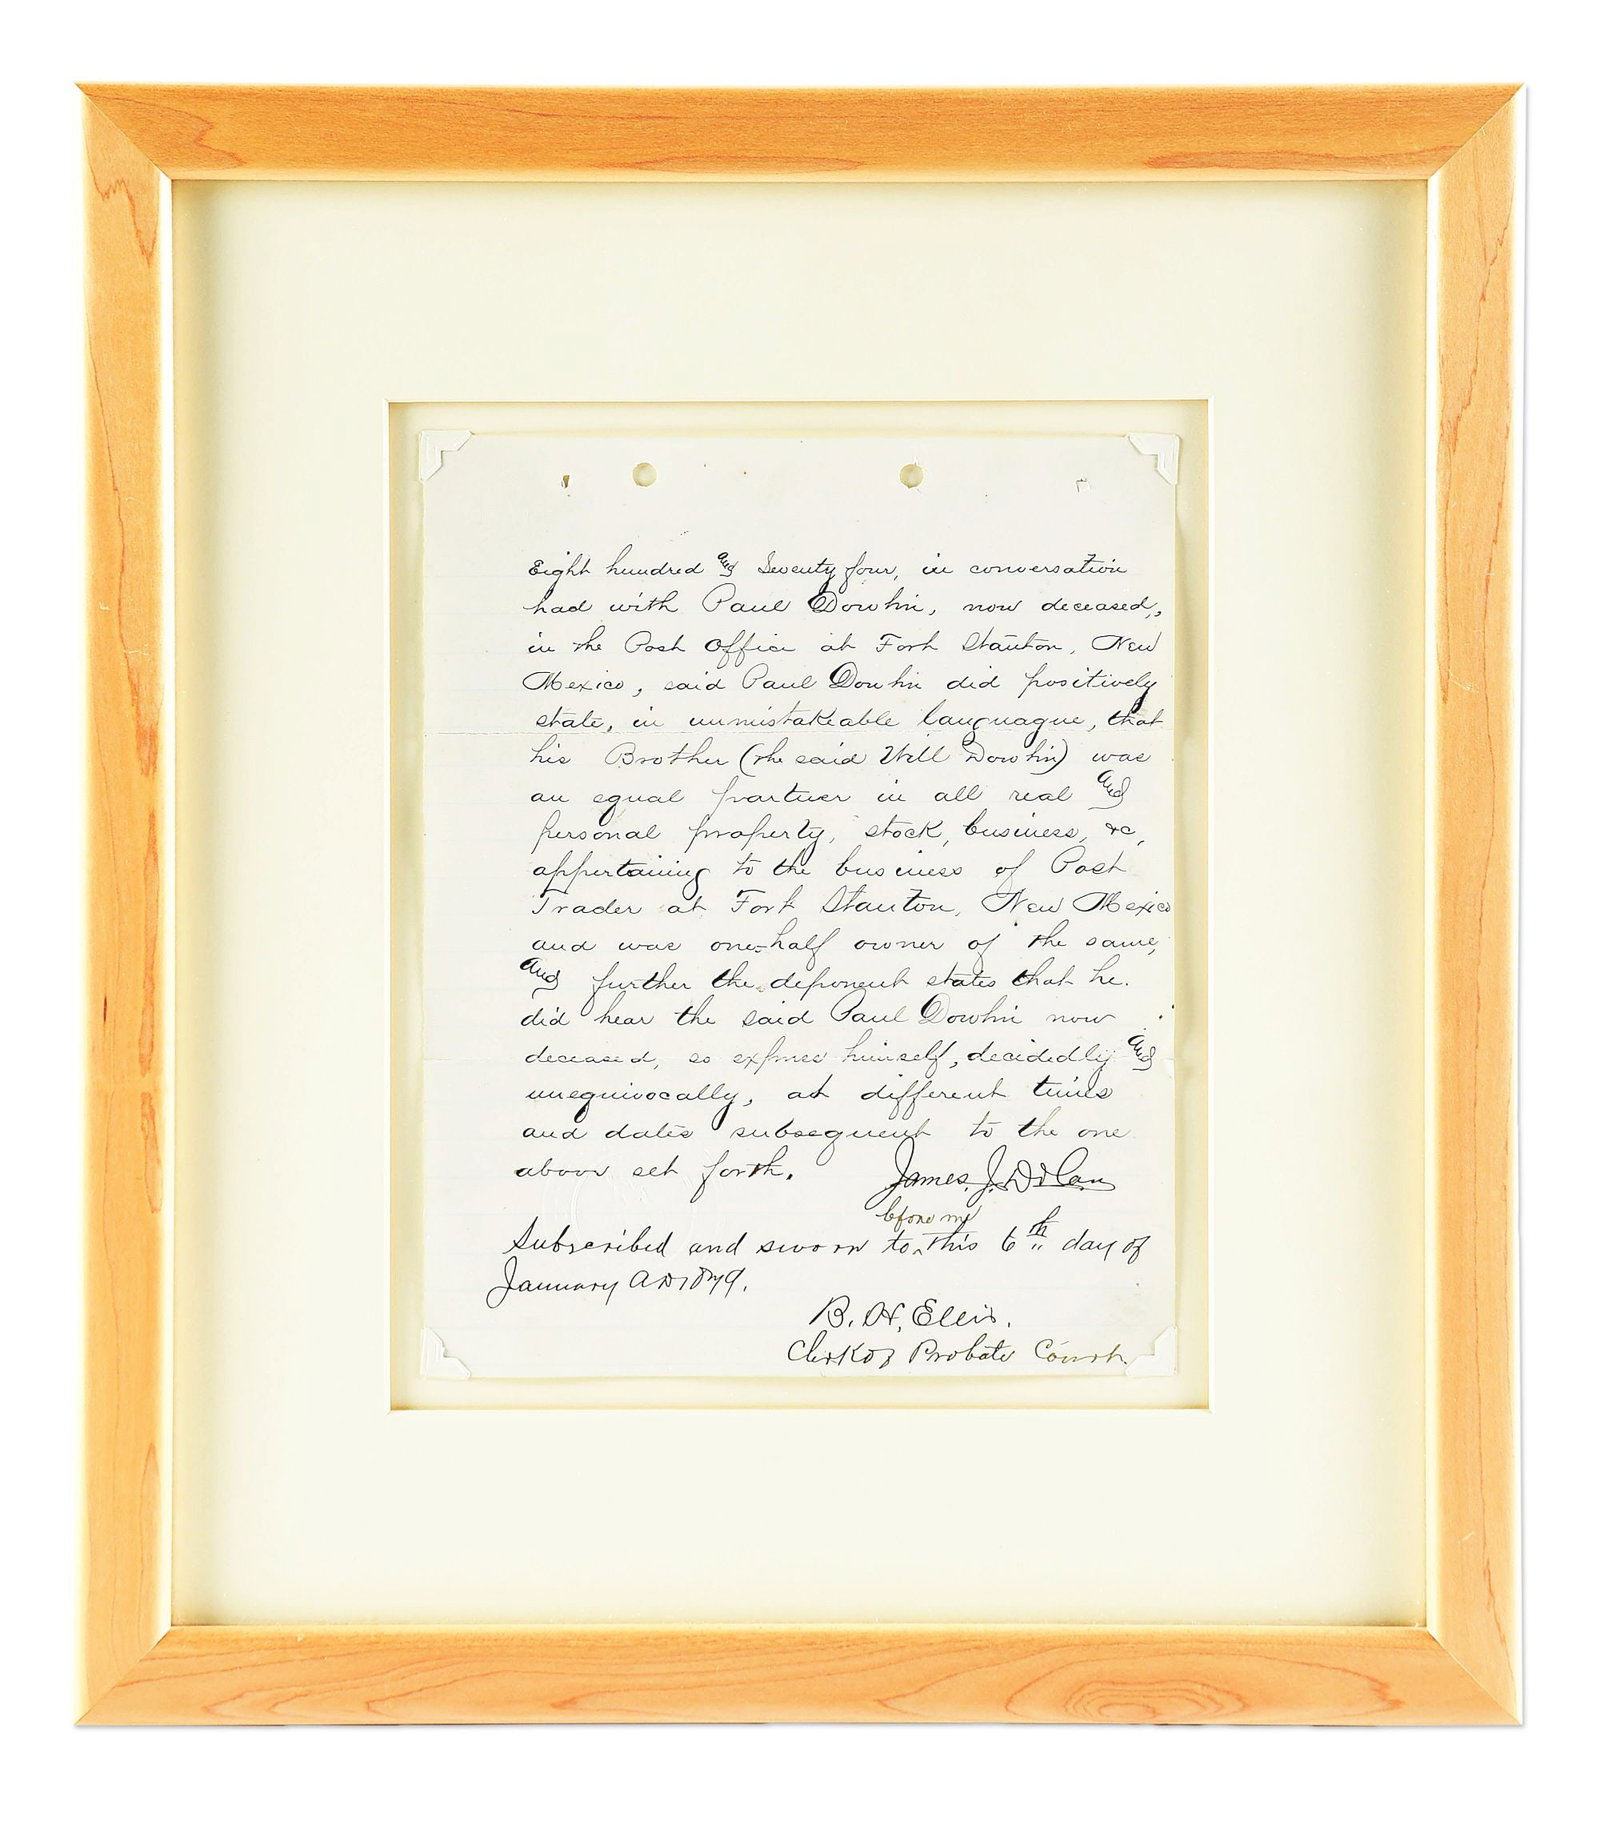 Eight hundred and Seventy four, in conversation
had with Paul Dowlin, now deceased,
in the Post Office at Fort Stanton, New
Mexico, said Paul Dowlin did positively
state, in unmistakeable languague, that
his Brother (the said Will Dowlin) was
an equal partner in all real and
personal property, stock, business, &c,
appertaining to the business of Post
Trader at Fort Stanton, New Mexico
and was one-half owner of the same,
and further the deponent states that he
did hear the said Paul Dowlin now
deceased, so express himself, decidedly and
unequivocally, at different times
and dates subsequent to the one
above set forth. James. J. Dolan
before me
Subscribed and sworn to ^ this 6th day of
January AD 1879.
B. H. Ellis.
Clerk of Probate Court.